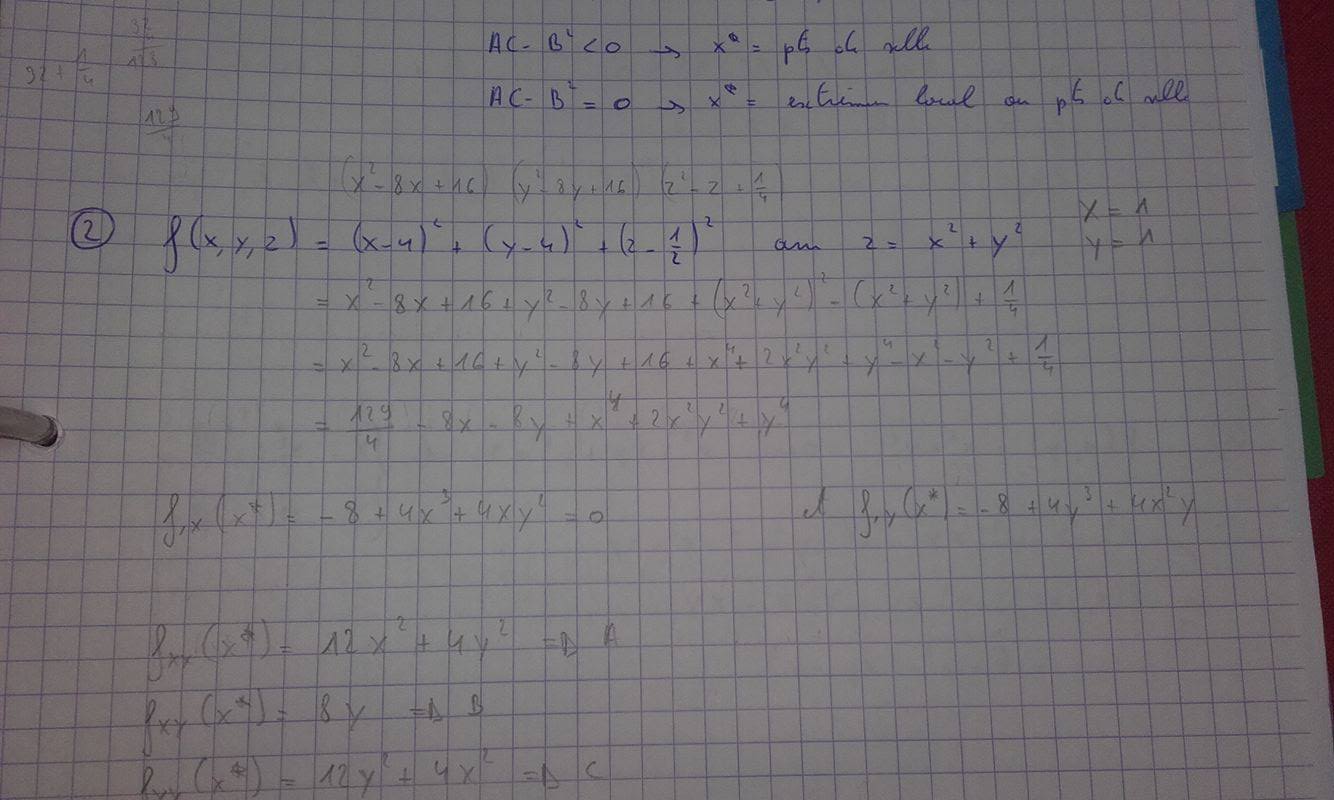 AC - B² < 0 → x* = pt de selle
AC - B² = 0 → x* = extremum local ou pt de selle
32
32 + 1/4
129/4
(x² - 8x + 16) (y² - 8y + 16) (z² - z + 1/4)
x = 1
y = 1
② f(x, y, z) = (x-4)² + (y-4)² + (z - 1/2)² avec z = x² + y²
= x² - 8x + 16 + y² - 8y + 16 + (x² + y²)² - (x² + y²) + 1/4
= x² - 8x + 16 + y² - 8y + 16 + x⁴ + 2x²y² + y⁴ - x² - y² + 1/4
= 129/4 - 8x - 8y + x⁴ + 2x²y² + y⁴
f,x (x*) = -8 + 4x³ + 4xy² = 0 et f,y (x*) = -8 + 4y³ + 4x²y
fxx (x*) = 12x² + 4y² => A
fxy (x*) = 8y => B
fyy (x*) = 12y² + 4x² => C